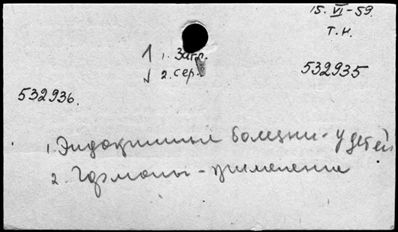 15. VI-59.
Т.Н.
1. Загл.
2. сер.
532935
532936.
1. Эндокринные болезни - у детей
2. Гормоны - применение